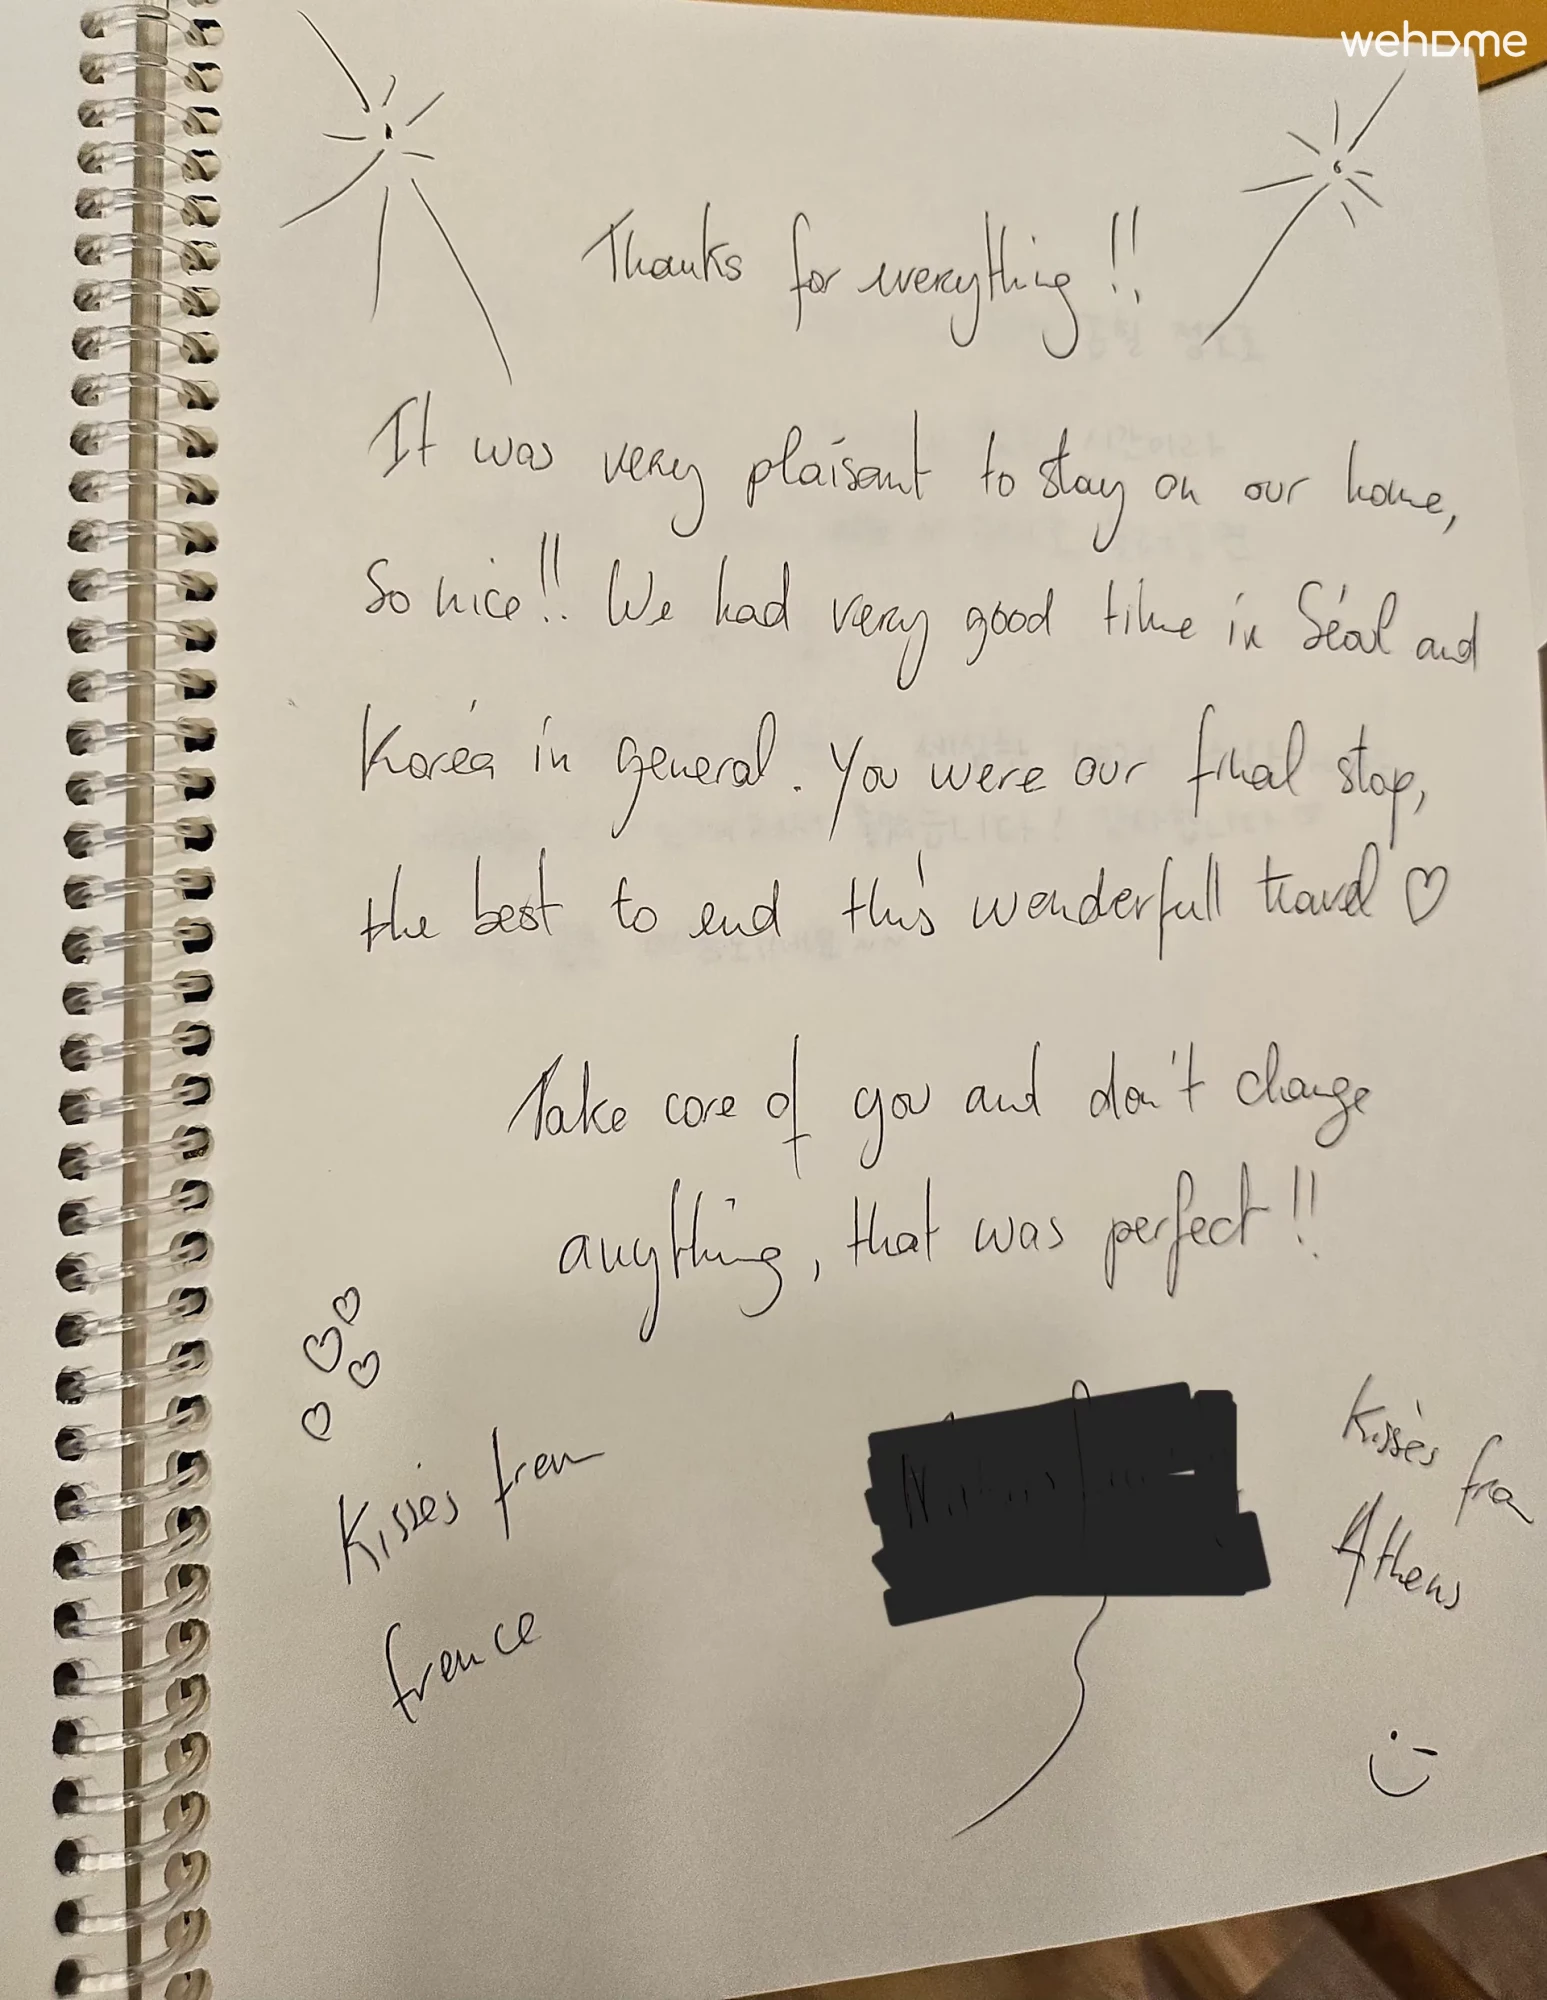 wehome
Thanks for everything !!
It was very plaisant to stay on our home,
So nice !! We had very good time in Séoul and
Koréa in general. You were our final stop,
the best to end this wonderfull travel ♡
Take care of you and don't change
anything, that was perfect !!
Kisses from
france
Kisses fro
Athens